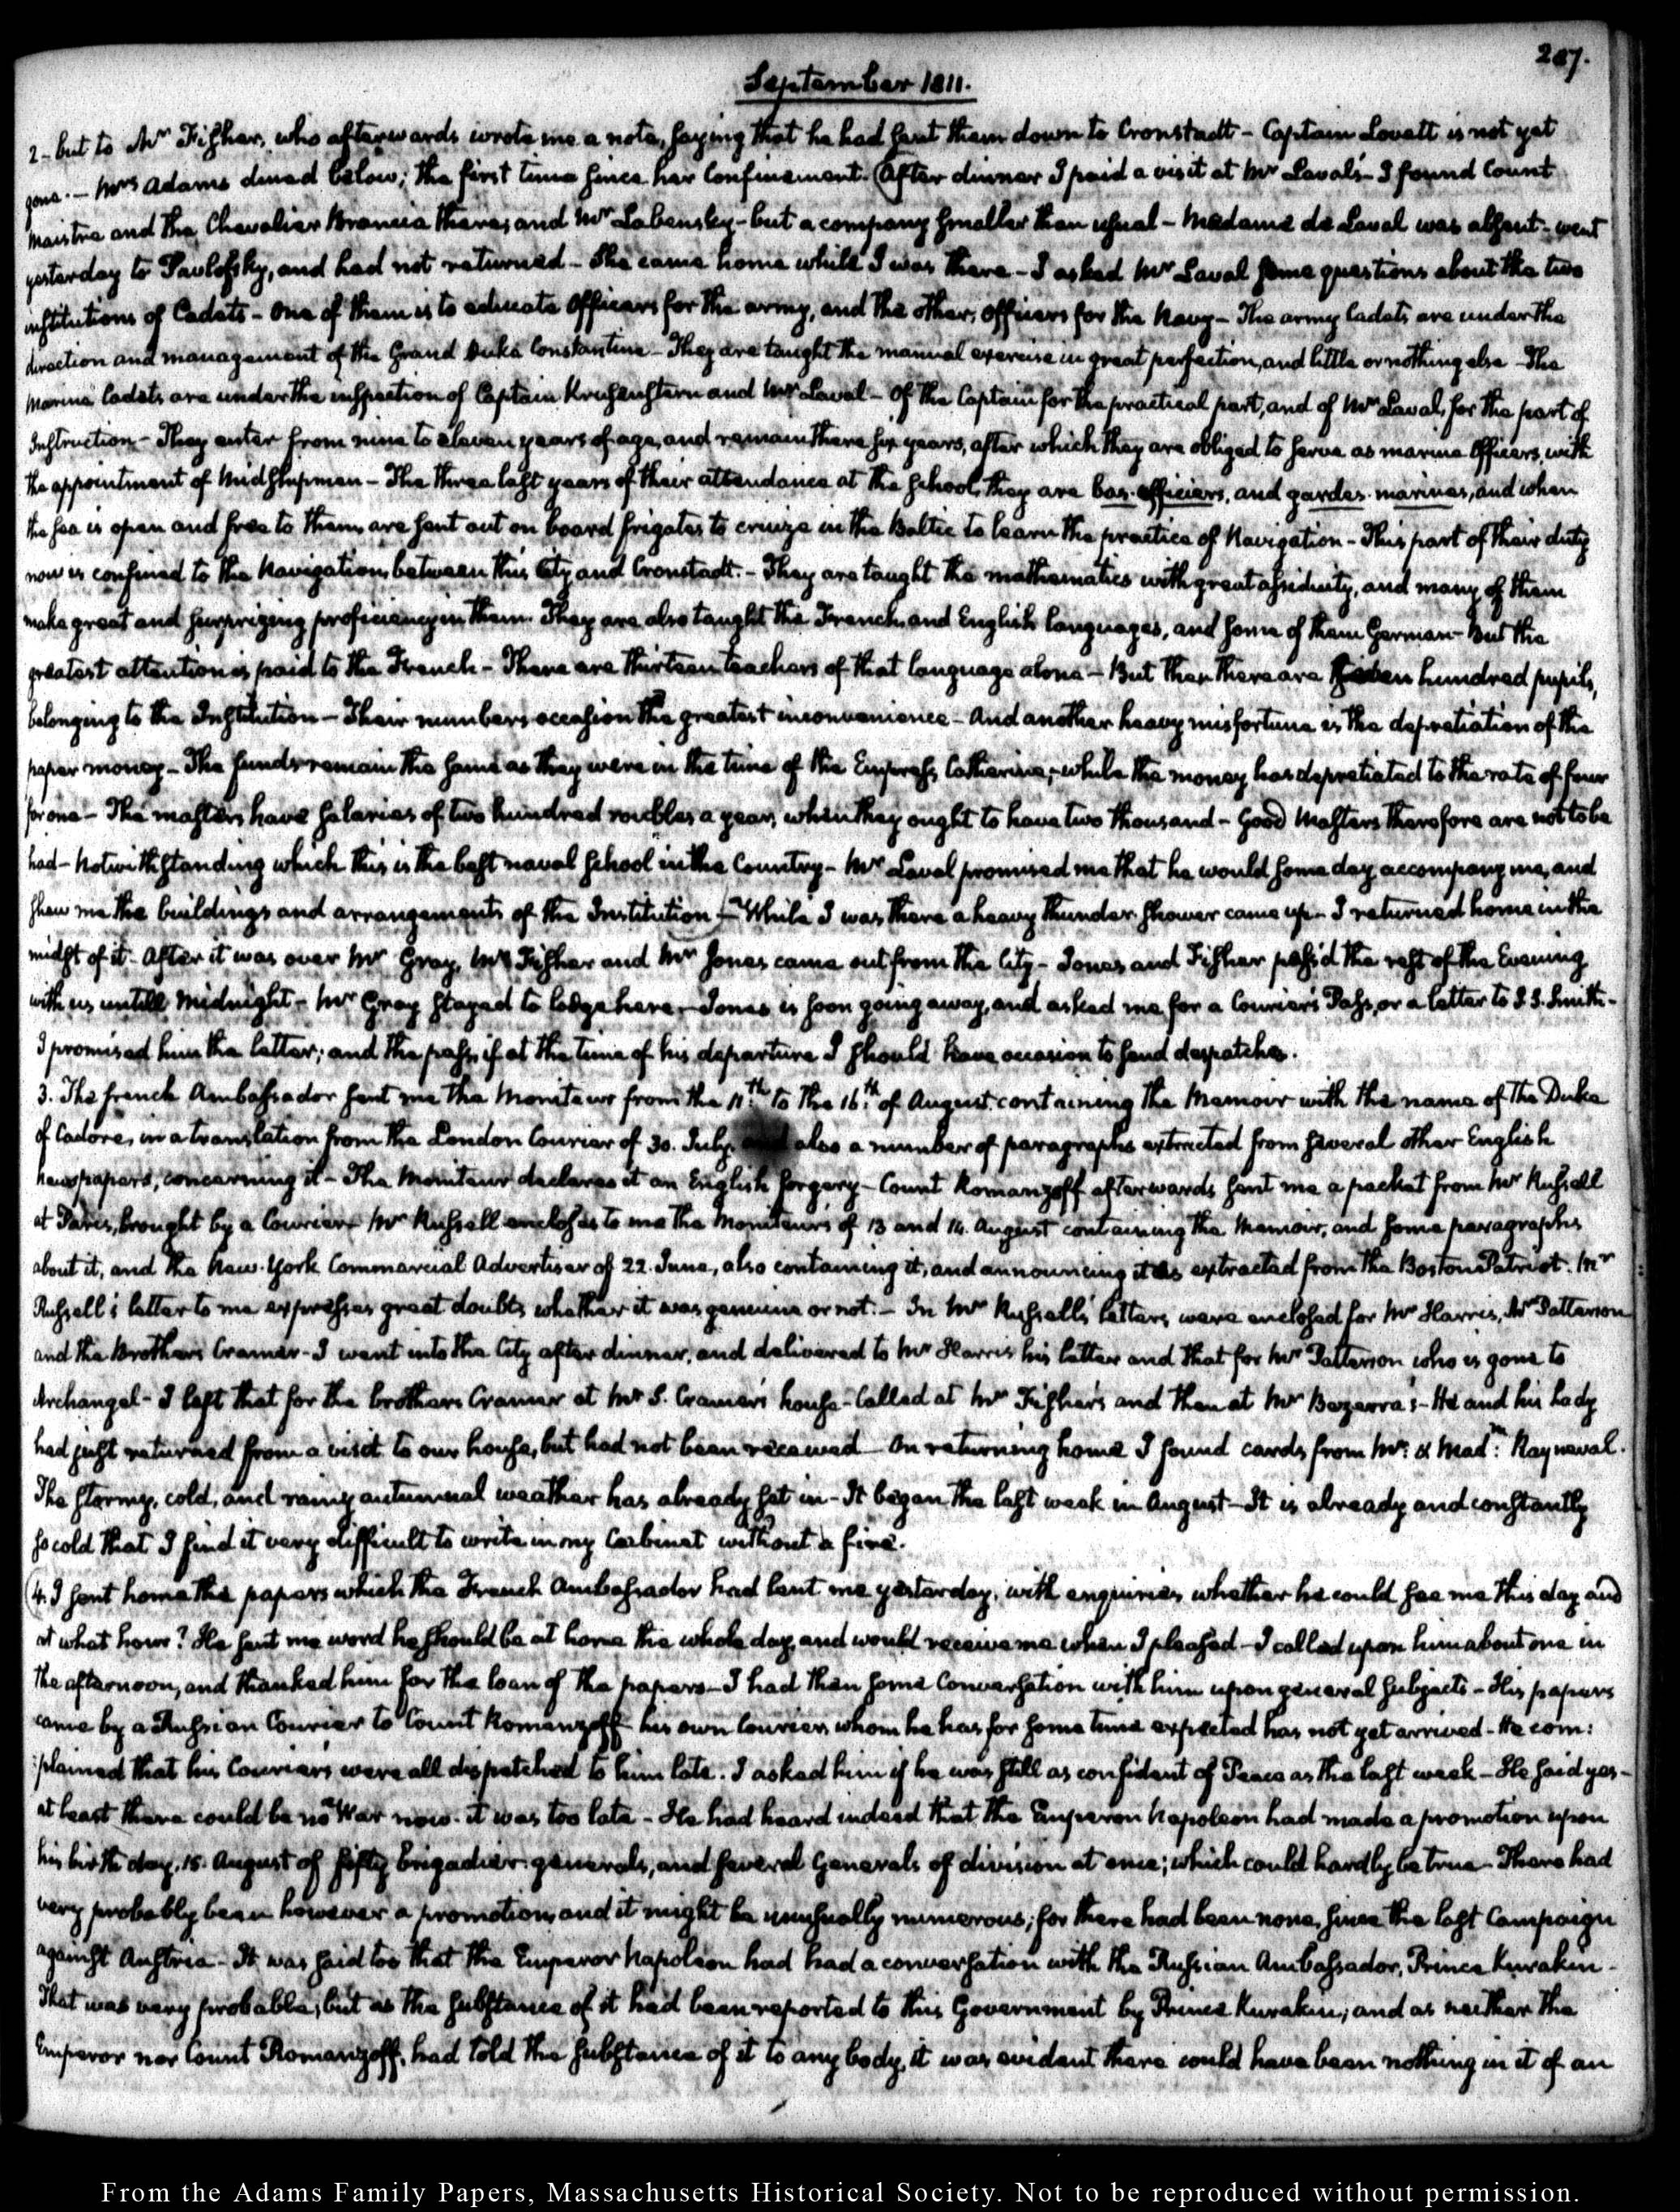 207.
September 1811.
2 - but to Mr Fisher, who afterwards wrote me a note, saying that he had sent them down to Cronstadt - Captain Lovett is not yet
gone. - Mrs Adams dined below; the first time since her Confinement. (After dinner I paid a visit at Mr Laval's - I found Count
Maistre and the Chevalier Brancia there; and Mr Labensky - but a company smaller than usual - Madame de Laval was absent - went
yesterday to Pavlofsky, and had not returned - She came home while I was there - I asked Mr Laval some questions about the two
institutions of Cadets - One of them is to educate Officers for the army, and the other, Officers for the Navy - The army Cadets are under the
direction and management of the Grand Duke Constantine - They are taught the manual exercise in great perfection, and little or nothing else - The
Marine Cadets are under the inspection of Captain Krusenstern and Mr Laval - Of the Captain for the practical part, and of Mr Laval, for the part of
Instruction - They enter from nine to eleven years of age, and remain there six years, after which they are obliged to serve as marine Officers, with
the appointment of Midshipmen - The three last years of their attendance at the school, they are bas-officiers, and gardes-marines, and when
the sea is open and free to them, are sent out on board frigates to cruize in the Baltic to learn the practice of Navigation - This part of their duty
now is confined to the Navigation, between this City and Cronstadt. - They are taught the mathematics with great assiduity, and many of them
make great and surprizing proficiency in them. They are also taught the French, and English languages, and some of them German - But the
greatest attention is paid to the French - There are thirteen teachers of that language alone - But then there are hundred pupils,
belonging to the Institution - Their numbers occasion the greatest inconvenience - And another heavy misfortune is the depretiation of the
paper money - The funds remain the same as they were in the time of the Empress Catherine, - while the money has depretiated to the rate of four
for one - The masters have salaries of two hundred roubles a year, when they ought to have two thousand - Good Masters therefore are not to be
had - Notwithstanding which this is the best naval school in the Country - Mr Laval promised me that he would some day accompany me, and
shew me the buildings and arrangements of the Institution) - While I was there a heavy thunder shower came up - I returned home in the
midst of it - After it was over Mr Gray, Mr Fisher and Mr Jones came out from the City - Jones and Fisher pass'd the rest of the Evening
with us untill Midnight - Mr Gray stayed to lodge here. - Jones is soon going away, and asked me for a Courier's Pass, or a letter to J. S. Smith -
I promised him the letter; and the pass, if at the time of his departure I should have occasion to send despatches.
3. The french Ambassador sent me the Moniteurs from the 11th to the 16th of August containing the Memoir with the name of the Duke
of Cadore, in a translation from the London Courier of 30. July, and also a number of paragraphs extracted from several other English
newspapers, concerning it - The Moniteur declares it an English forgery - Count Romanzoff afterwards sent me a packet from Mr Russell
at Paris, brought by a Courier - Mr Russell encloses to me the Moniteurs of 13 and 14. August containing the Memoir, and some paragraphs
about it, and the New-York Commercial Advertiser of 22. June, also containing it, and announcing it as extracted from the Boston Patriot. Mr
Russell's letter to me expresses great doubts whether it was genuine or not. - In Mr Russell's letters were enclosed for Mr Harris, Mr Patterson
and the Brothers Cramer - I went into the City after dinner, and delivered to Mr Harris his letter and that for Mr Patterson who is gone to
Archangel - I left that for the brothers Cramer at Mr S. Cramer's house - Called at Mr Fisher's and then at Mr Bezerra's - He and his Lady
had just returned from a visit to our house, but had not been received - On returning home I found cards from Mr. & Made. Rayneval.
The stormy, cold, and rainy autumnal weather has already set in - It began the last week in August - It is already and constantly
so cold that I find it very difficult to write in my Cabinet without a fire.
(4. I sent home the papers which the French Ambassador had lent me yesterday, with enquiries whether he could see me this day and
at what hour? He sent me word he should be at home the whole day, and would receive me when I pleased - I called upon him about one in
the afternoon, and thanked him for the loan of the papers - I had then some Conversation with him upon general subjects - His papers
came by a Russian Courier to Count Romanzoff his own Courier, whom he has for some time expected has not yet arrived - He com:
:plained that his Couriers were all dispatched to him late. I asked him if he was still as confident of Peace as the last week - He said yes -
at least there could be no War now - it was too late - He had heard indeed that the Emperor Napoleon had made a promotion upon
his birth day, 15. August of fifty brigadier-generals, and several Generals of division at once; which could hardly be true - There had
very probably been however a promotion, and it might be unusually numerous; for there had been none, since the last Campaign
against Austria - It was said too that the Emperor Napoleon had had a conversation with the Russian Ambassador, Prince Kurakin -
That was very probable; but as the substance of it had been reported to this Government by Prince Kurakin; and as neither the
Emperor nor Count Romanzoff, had told the substance of it to any body, it was evident there could have been nothing in it of an
From the Adams Family Papers, Massachusetts Historical Society. Not to be reproduced without permission.